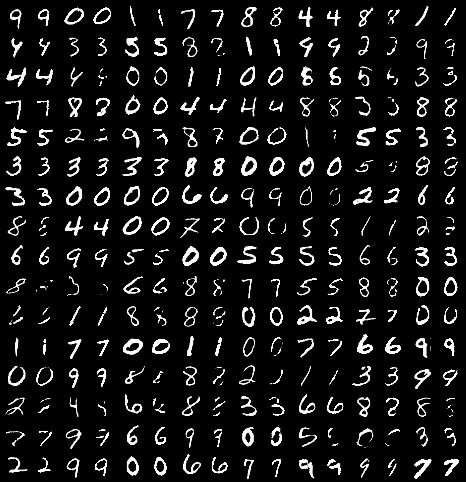 9 9 0 0 1 1 7 7 8 8 4 4 8 8 1 1
4 4 3 3 5 5 8 8 1 1 9 9 2 2 9 9
4 4 4 4 0 0 1 1 0 0 8 8 5 5 3 3
7 7 8 8 0 0 4 4 4 4 8 8 3 3 8 8
5 5 2 2 9 9 8 8 0 0 1 1 5 5 3 3
3 3 3 3 3 3 8 8 0 0 0 0 5 5 8 8
3 3 0 0 0 0 6 6 9 9 0 0 2 2 6 6
8 8 4 4 0 0 7 7 0 0 5 5 1 1 2 2
6 6 9 9 5 5 0 0 5 5 5 5 6 6 3 3
8 3 6 6 8 8 7 7 5 5 8 8 0 0
1 1 8 8 8 8 0 0 2 2 7 7 0 0
1 1 7 7 0 0 1 1 0 0 7 7 6 6 9 9
0 0 9 9 8 8 8 8 2 1 1 3 3 9 9
2 2 4 4 6 6 8 8 3 3 6 6 8 8 8 8
7 7 9 9 6 6 9 9 0 0 5 5 0 0 3 3
2 2 9 9 0 0 6 6 7 7 9 9 9 9 7 7